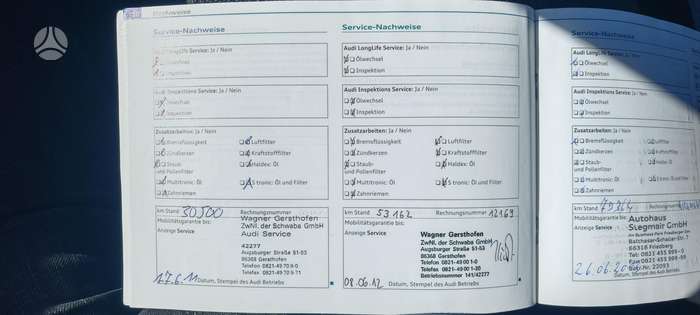 Nachweise
Service-Nachweise
Audi LongLife Service: Ja / Nein
Ölwechsel
Inspektion
Audi Inspektions Service: Ja / Nein
Ölwechsel
Inspektion
Zusatzarbeiten: Ja / Nein
Bremsflüssigkeit
Luftfilter
Zündkerzen
Kraftstofffilter
Staub- und Pollenfilter
Haldex: Öl
Multitronic: Öl
S tronic: Öl und Filter
Zahnriemen
km Stand 30500 Rechnungsnummer
Mobilitätsgarantie bis:
Anzeige Service
Wagner Gersthofen
ZwNl. der Schwaba GmbH
Audi Service
42277
Augsburger Straße 51-53
86368 Gersthofen
Telefon 0821-49 70 9-0
Telefax 0821-49 70 9-11
17.6.11
Datum, Stempel des Audi Betriebs
Service-Nachweise
Audi LongLife Service: Ja / Nein
Ölwechsel
Inspektion
Audi Inspektions Service: Ja / Nein
Ölwechsel
Inspektion
Zusatzarbeiten: Ja / Nein
Bremsflüssigkeit
Luftfilter
Zündkerzen
Kraftstofffilter
Staub- und Pollenfilter
Haldex: Öl
Multitronic: Öl
S tronic: Öl und Filter
Zahnriemen
km Stand 53162 Rechnungsnummer 12169
Mobilitätsgarantie bis:
Anzeige Service
Wagner Gersthofen
ZwNl. der Schwaba GmbH
Augsburger Straße 51-53
86368 Gersthofen
Telefon 0821-49 00 1-0
Telefax 0821-49 00 1-20
Betriebsnummer 141/42277
08.06.12
Datum, Stempel des Audi Betriebs
Service-Nachweise
Audi LongLife Service: Ja / Nein
Ölwechsel
Inspektion
Audi Inspektions Service: Ja / Nein
Ölwechsel
Inspektion
Zusatzarbeiten: Ja / Nein
Bremsflüssigkeit
Luftfilter
Zündkerzen
Kraftstofffilter
Staub- und Pollenfilter
Haldex: Öl
Multitronic: Öl
S tronic: Öl und Filter
Zahnriemen
km Stand Rechnungsnummer
Mobilitätsgarantie bis:
Anzeige Service
Autohaus
Siegmair GmbH
86316 Friedberg
Tel: 0821 455 999-0
Fax 0821 455 999-99
Datum, Stempel des Audi Betriebs